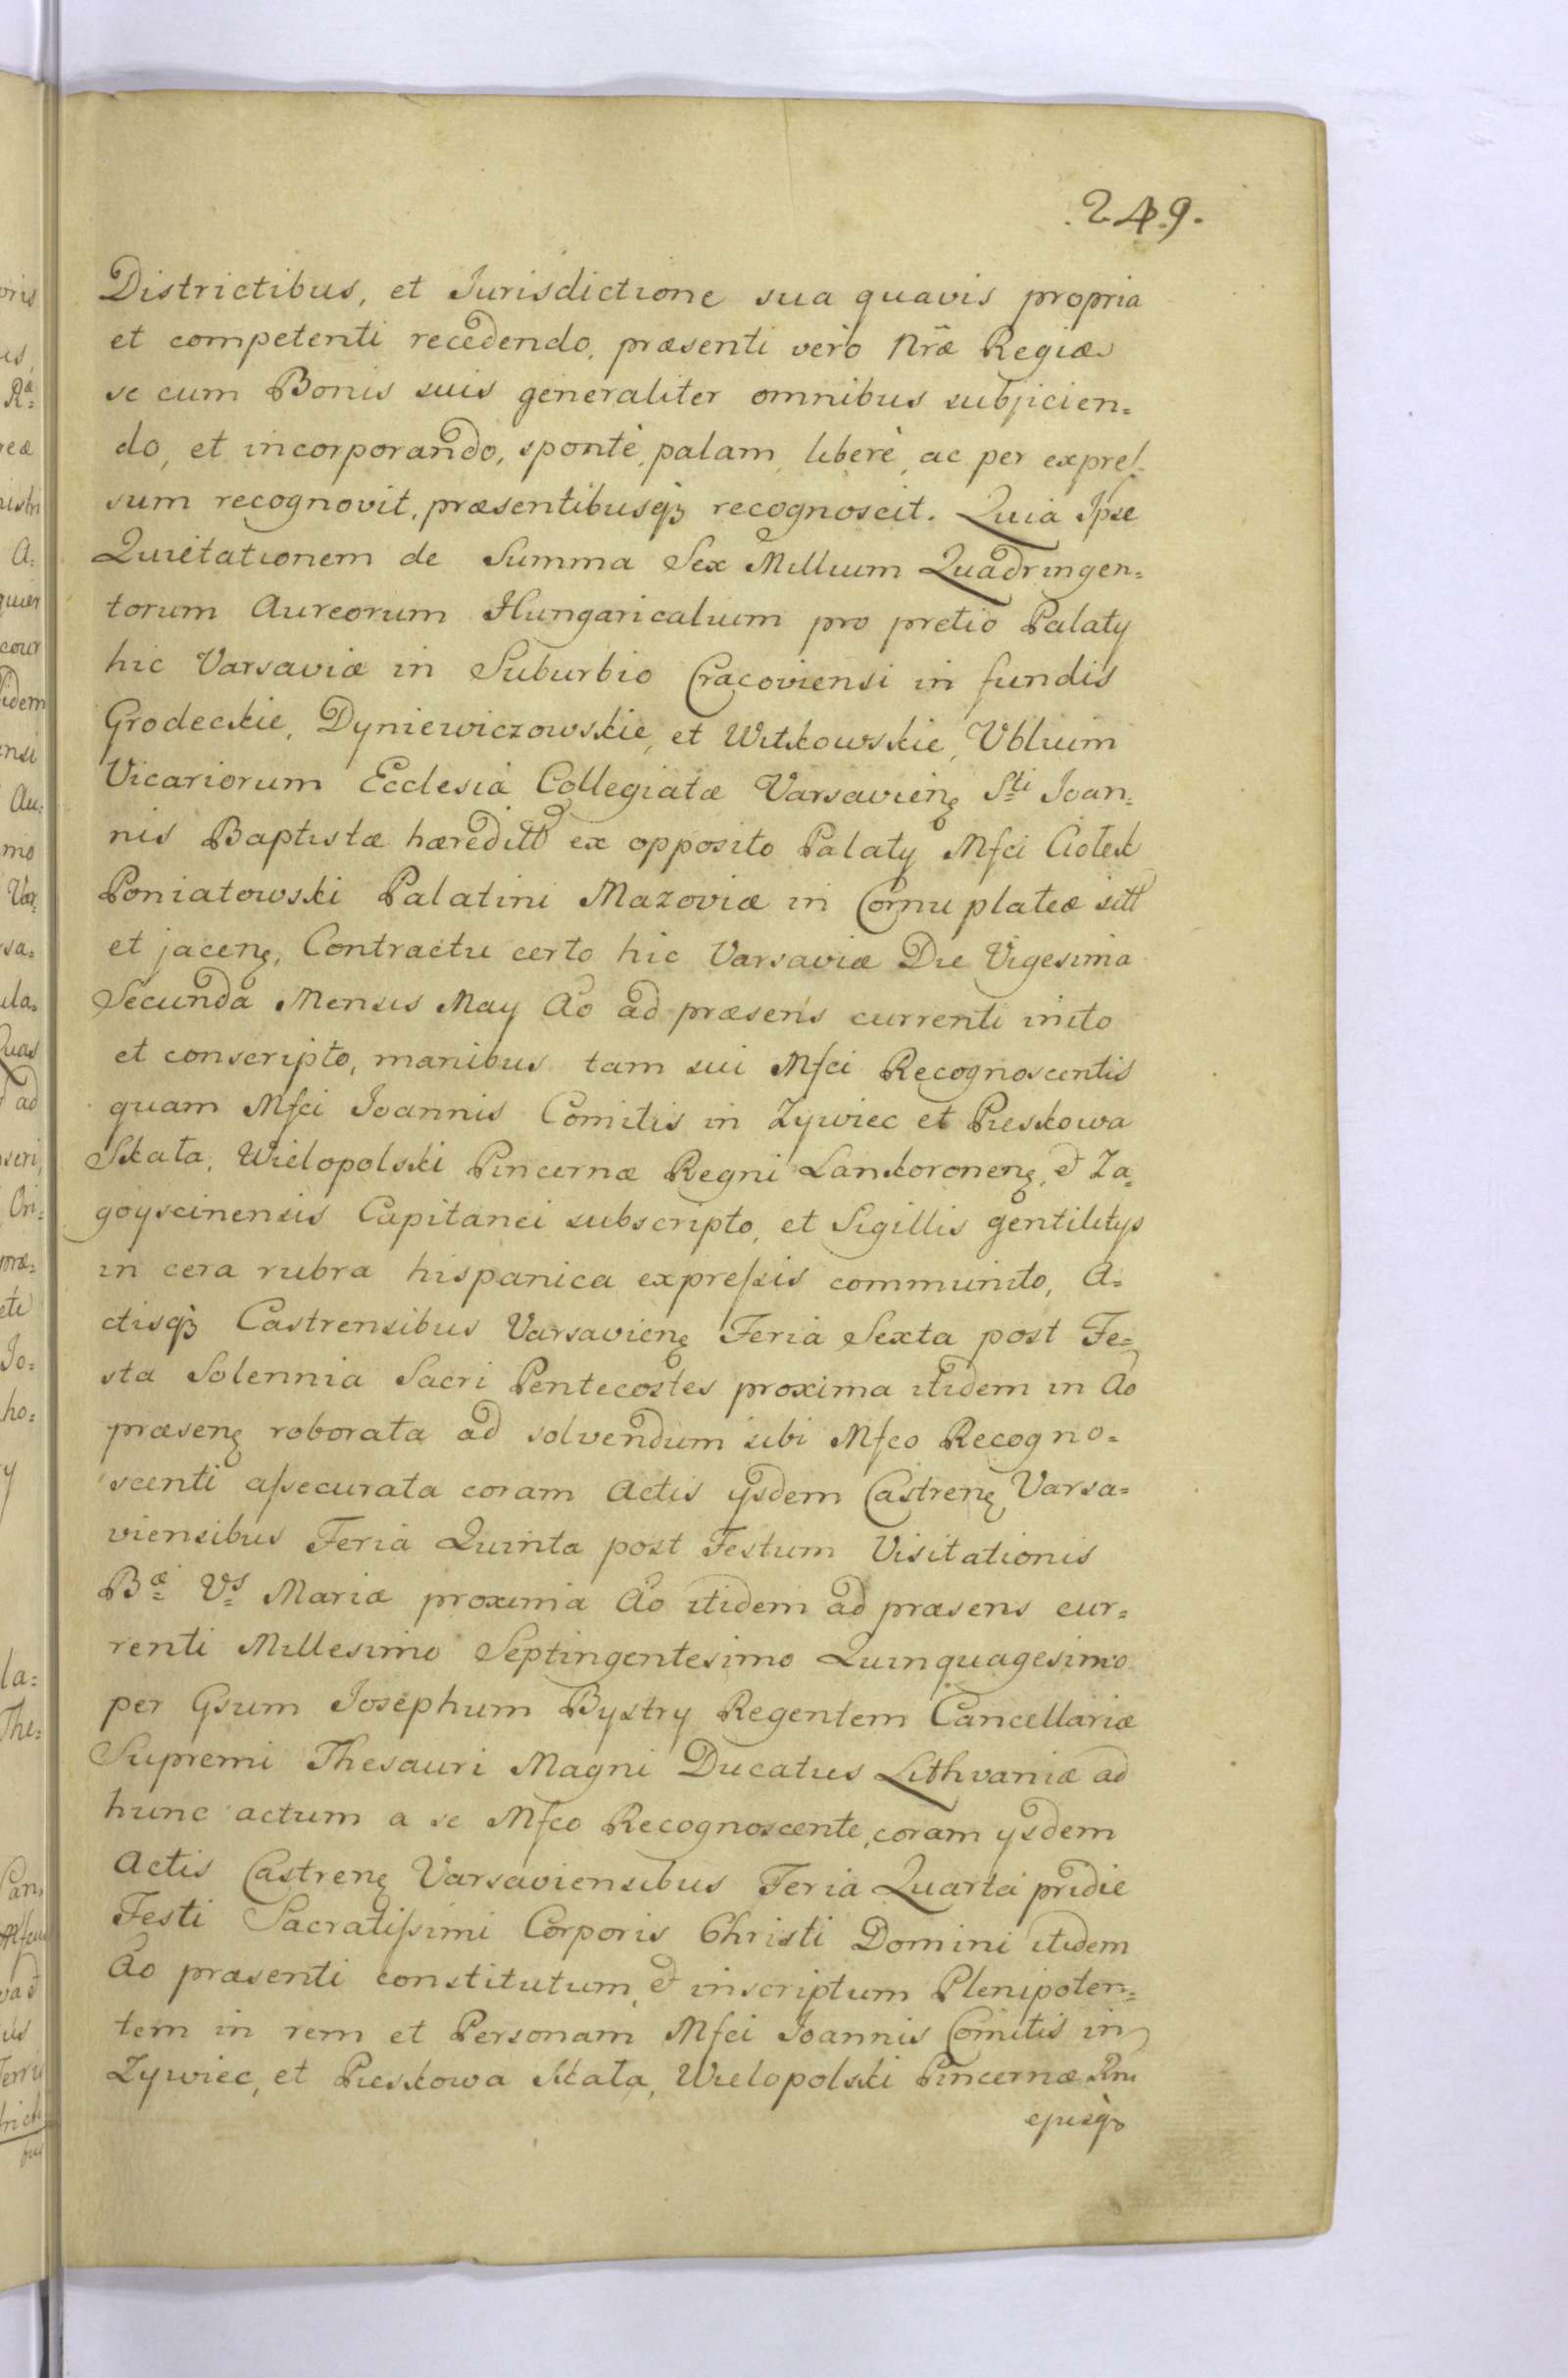 .249.
Districtibus, et Jurisdictione sua quavis propria
et competenti recedendo, præsenti verò Nræ Regiæ
se cum Bonis suis generaliter omnibus subjicien=
do, et incorporando, spontè, palam, liberè, ac per expres=
sum recognovit, præsentibusq3 recognoscit. Quia Ipse
Quietationem de Summa Sex Millium Quadringen=
torum Aureorum Hungaricalium pro pretio Palaty
hic Varsaviæ in Suburbio Cracoviensi in fundis
Grodeckie, Dyniewiczowskie, et Witkowskie, Vblium
Vicariorum Ecclesia Collegiatæ Varsavieng Sti Joan=
nis Baptistæ hæreditt ex opposito Palaty Mfci Ciołek
Poniatowski Palatini Mazoviæ in Cornu plateæ sitt
et jaceng, Contractu certo hic Varsaviæ Die Vigesima
Secunda Mensis May Ao ad præsens currenti inito
et conscripto, manibus tam sui Mfci Recognoscentis
quam Mfci Joannis Comitis in Zywiec et Pieskowa
Skała, Wielopolski Pincernæ Regni Lanckoroneng, & Za=
goyscinensis Capitanei subscripto, et Sigillis gentilitys
in cera rubra hispanica expressis communito, A=
ctisq3 Castrensibus Varsavieng Feria Sexta post Fe=
sta Solennia Sacri Pentecostes proxima itidem in Ao
præseng roborata ad solvendum sibi Mfco Recogno=
scenti assecurata coram Actis ysdem Castreng Varsa=
viensibus Feria Quinta post Festum Visitationis
Bæ Vs Mariæ proxima Ao itidem ad præsens cur=
renti Millesimo Septingentesimo Quinquagesimo
per Gsum Josephum Bystry Regentem Cancellariæ
Supremi Thesauri Magni Ducatus Lithvaniæ ad
hunc actum a se Mfco Recognoscente, coram ysdem
Actis Castreng Varsaviensibus Feria Quarta pridie
Festi Sacratissimi Corporis Christi Domini itidem
Ao præsenti constitutum, & inscriptum Plenipoten=
tem in rem et Personam Mfci Joannis Comitis in
Zywiec, et Pieskowa Skała, Wielopolski Pincernæ Rni
ejusq3